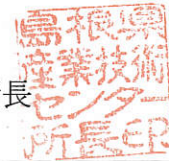 長
島根県
産業技術
センター
所長印